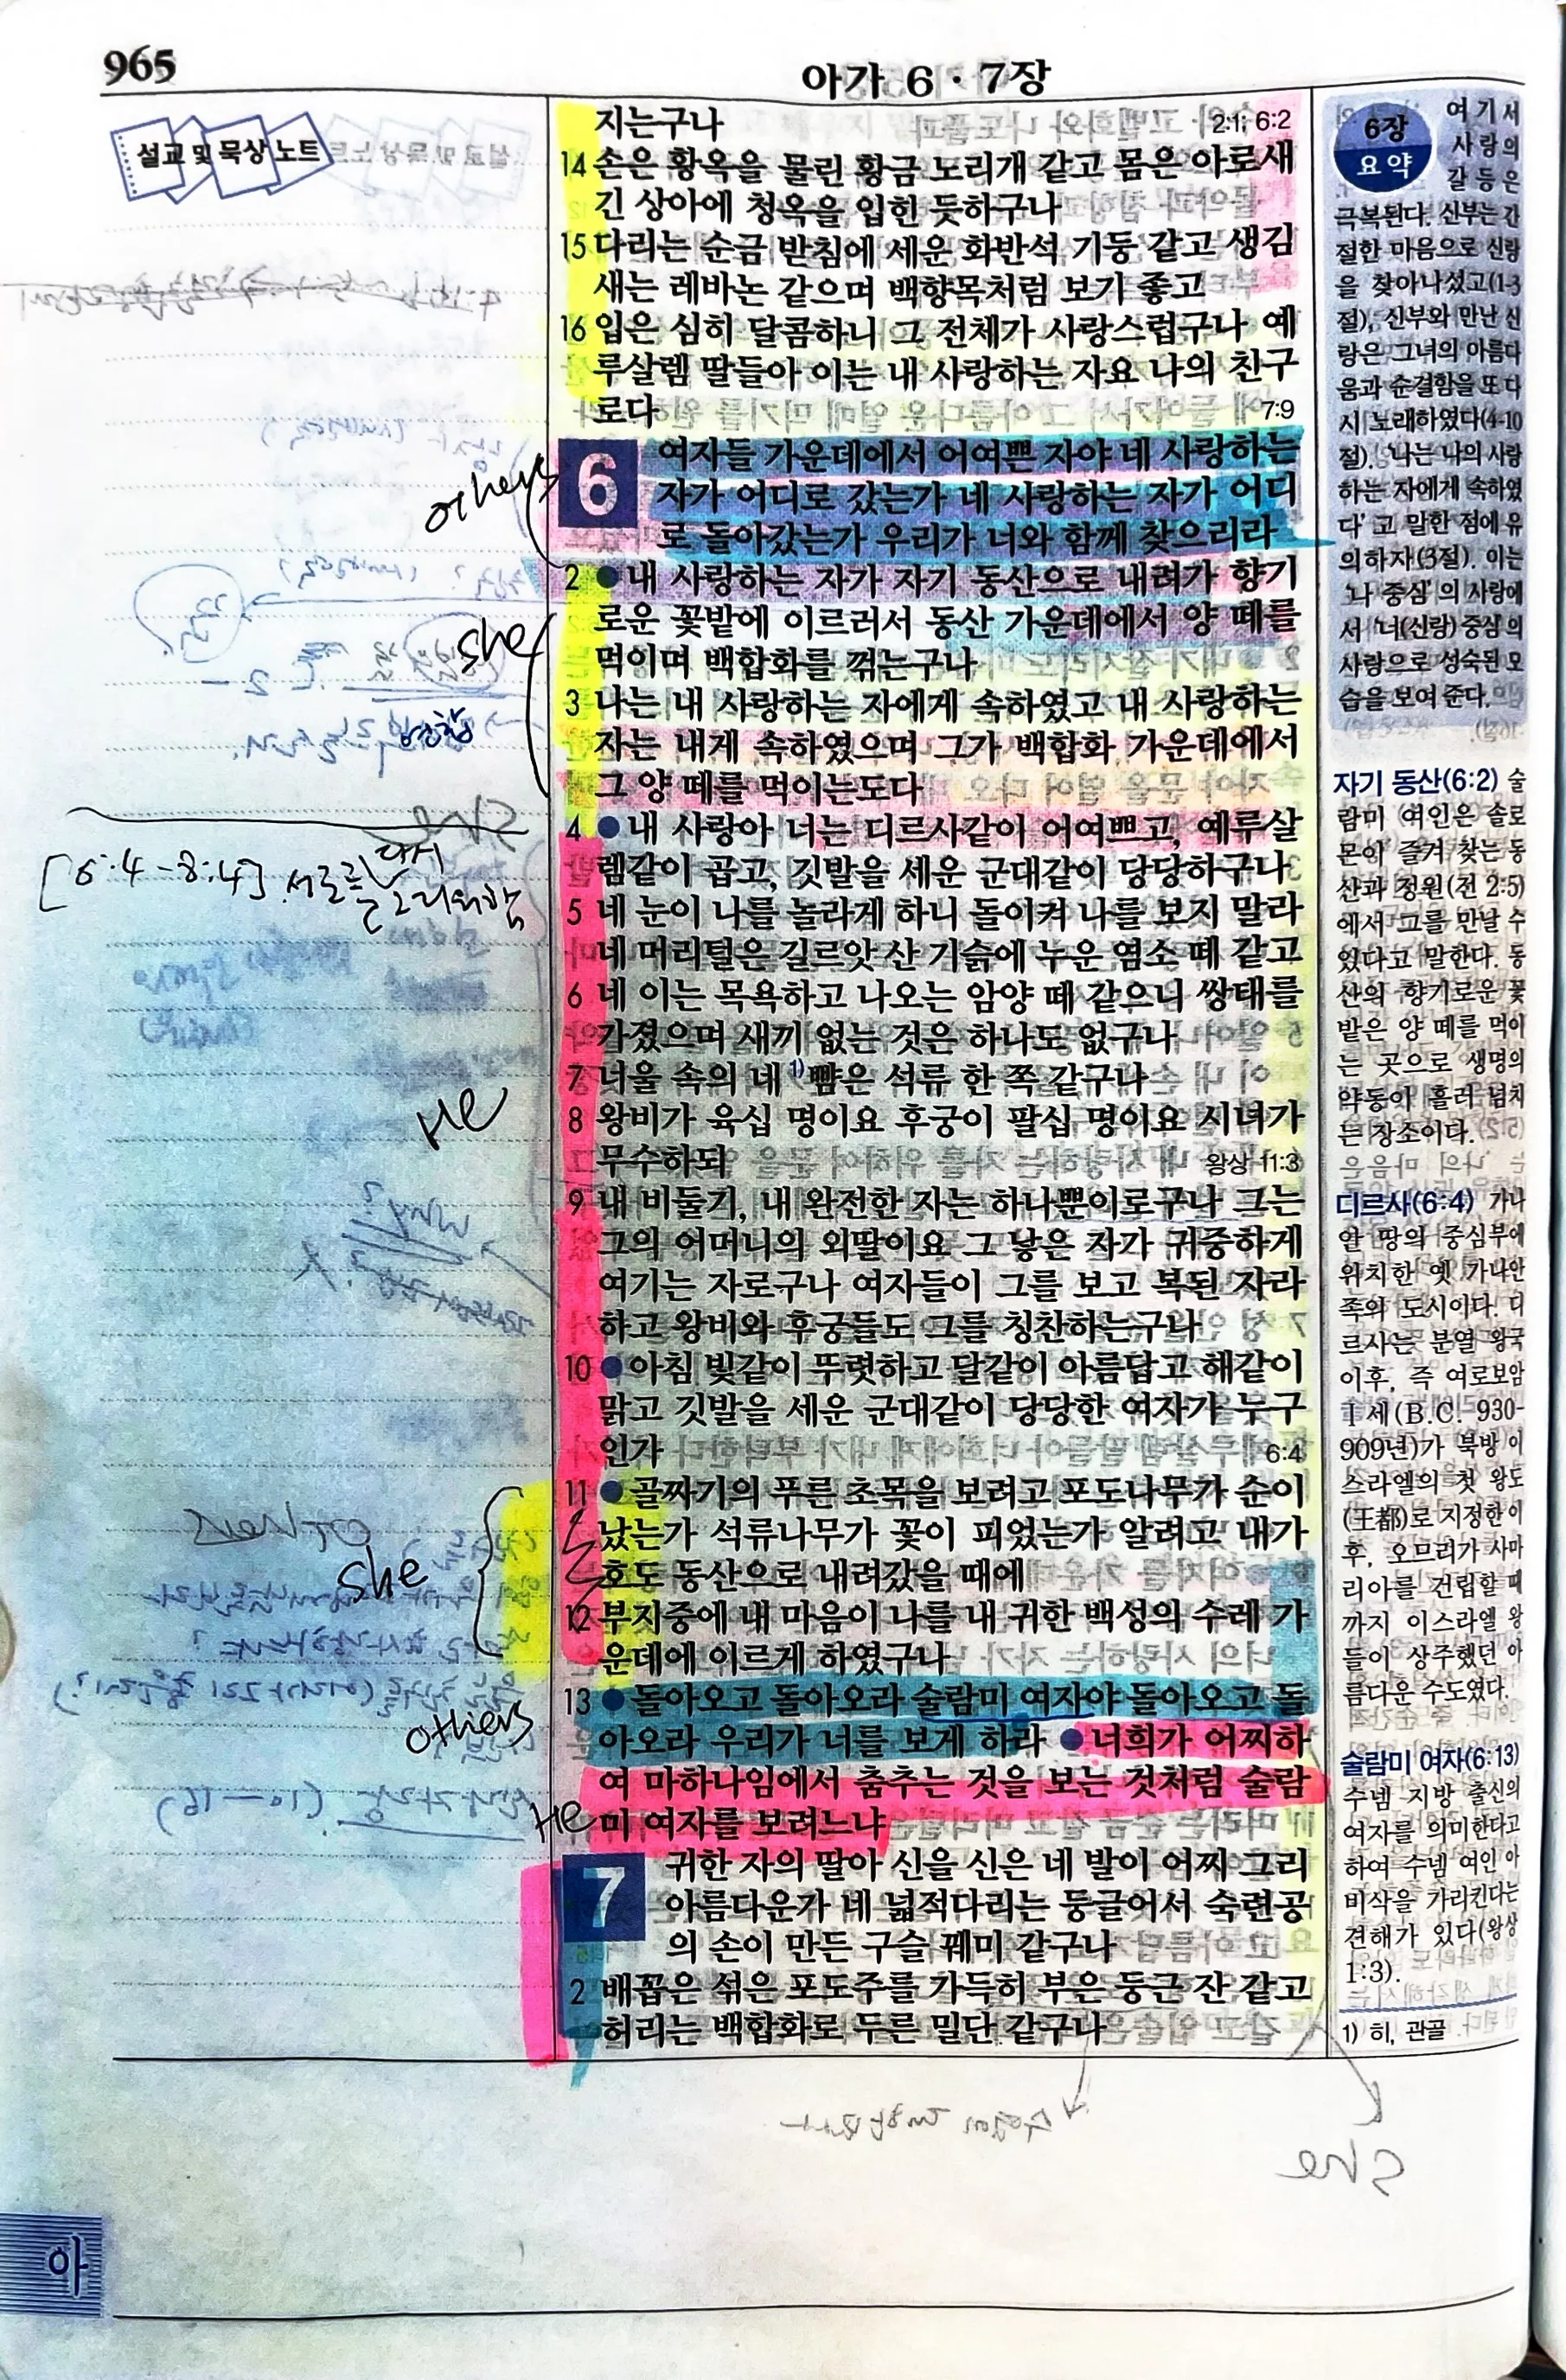 965
아가 6 · 7장
설교 및 묵상 노트
지는구나 2:1; 6:2
14 손은 황옥을 물린 황금 노리개 같고 몸은 아로새
긴 상아에 청옥을 입힌 듯하구나
15 다리는 순금 받침에 세운 화반석 기둥 같고 생김
새는 레바논 같으며 백향목처럼 보기 좋고
16 입은 심히 달콤하니 그 전체가 사랑스럽구나 예
루살렘 딸들아 이는 내 사랑하는 자요 나의 친구
로다 7:9
others
6 여자들 가운데에서 어여쁜 자야 네 사랑하는
자가 어디로 갔는가 네 사랑하는 자가 어디
로 돌아갔는가 우리가 너와 함께 찾으리라
2 ●내 사랑하는 자가 자기 동산으로 내려가 향기
로운 꽃밭에 이르러서 동산 가운데에서 양 떼를
먹이며 백합화를 꺾는구나
she
3 나는 내 사랑하는 자에게 속하였고 내 사랑하는
자는 내게 속하였으며 그가 백합화 가운데에서
그 양 떼를 먹이는도다
[6:4-8:4] 서로를 다시 그리워함
4 ●내 사랑아 너는 디르사같이 어여쁘고, 예루살
렘같이 곱고, 깃발을 세운 군대같이 당당하구나
5 네 눈이 나를 놀라게 하니 돌이켜 나를 보지 말라
네 머리털은 길르앗 산 기슭에 누운 염소 떼 같고
6 네 이는 목욕하고 나오는 암양 떼 같으니 쌍태를
가졌으며 새끼 없는 것은 하나도 없구나
7 너울 속의 네 1)뺨은 석류 한 쪽 같구나
He
8 왕비가 육십 명이요 후궁이 팔십 명이요 시녀가
무수하되 왕상 11:3
9 내 비둘기, 내 완전한 자는 하나뿐이로구나 그는
그의 어머니의 외딸이요 그 낳은 자가 귀중하게
여기는 자로구나 여자들이 그를 보고 복된 자라
하고 왕비와 후궁들도 그를 칭찬하는구나
10 ●아침 빛같이 뚜렷하고 달같이 아름답고 해같이
맑고 깃발을 세운 군대같이 당당한 여자가 누구
인가 6:4
11 ●골짜기의 푸른 초목을 보려고 포도나무가 순이
났는가 석류나무가 꽃이 피었는가 알려고 내가
호도 동산으로 내려갔을 때에
she
12 부지중에 내 마음이 나를 내 귀한 백성의 수레 가
운데에 이르게 하였구나
13 ●돌아오고 돌아오라 술람미 여자야 돌아오고 돌
아오라 우리가 너를 보게 하라 ●너희가 어찌하
others
여 마하나임에서 춤추는 것을 보는 것처럼 술람
미 여자를 보려느냐
He
7 귀한 자의 딸아 신을 신은 네 발이 어찌 그리
아름다운가 네 넓적다리는 둥글어서 숙련공
의 손이 만든 구슬 꿰미 같구나
2 배꼽은 섞은 포도주를 가득히 부은 둥근 잔 같고
허리는 백합화로 두른 밀단 같구나
6장
요약
여기서
사랑의
갈등은
극복된다. 신부는 간
절한 마음으로 신랑
을 찾아나섰고(1-3
절), 신부와 만난 신
랑은 그녀의 아름다
움과 순결함을 또 다
시 노래하였다(4-10
절). '나는 나의 사랑
하는 자에게 속하였
다'고 말한 점에 유
의하자(3절). 이는
'나 중심'의 사랑에
서 '너(신랑) 중심'의
사랑으로 성숙된 모
습을 보여 준다.
자기 동산(6:2) 술
람미 여인은 솔로
몬이 즐겨 찾는 동
산과 정원(전 2:5)
에서 그를 만날 수
있다고 말한다. 동
산의 향기로운 꽃
밭은 양 떼를 먹이
는 곳으로 생명의
약동이 흘러 넘치
는 장소이다.
디르사(6:4) 가나
안 땅의 중심부에
위치한 옛 가나안
족의 도시이다. 디
르사는 분열 왕국
이후, 즉 여로보암
1 세(B.C. 930-
909년)가 북방 이
스라엘의 첫 왕도
(王都)로 지정한 이
후, 오므리가 사마
리아를 건립할 때
까지 이스라엘 왕
들이 상주했던 아
름다운 수도였다.
술람미 여자(6:13)
수넴 지방 출신의
여자를 의미한다고
하여 수넴 여인 아
비삭을 가리킨다는
견해가 있다(왕상
1:3).
1) 히, 관골
아